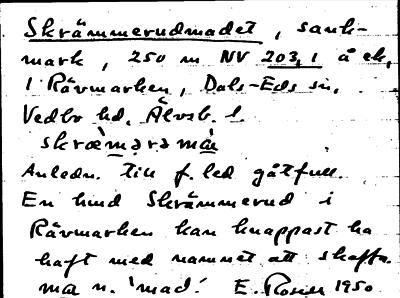 Skrämmerudmadet, sank-
mark, 250 m NV 203,1 å ek,
i Rävmarken, Dals-Eds sn,
Vedbo hd, Älvsb. l.
skræ̀mərəmàa
Anledn. till f. led gåtfull.
En hund Skrämmerud i
Rävmarken kan knappast ha
haft med namnet att skaffa.
ma n. 'mad'. E. Rosén 1950